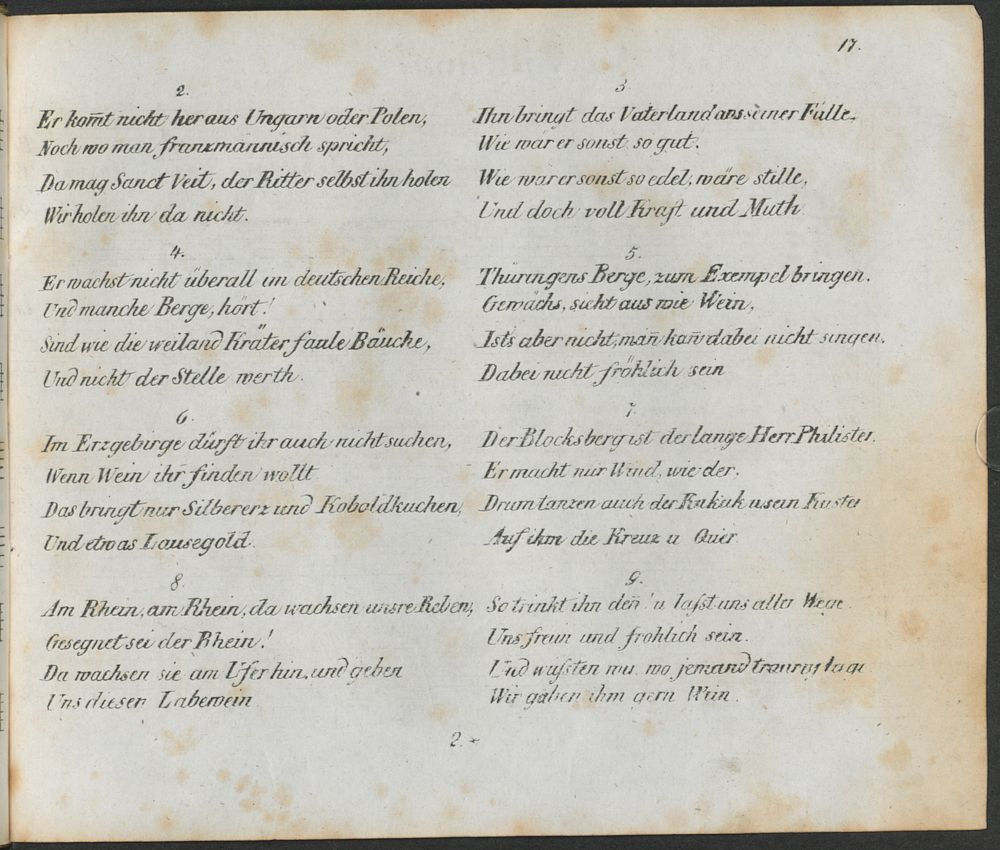 17.
2.
Er kom̄t nicht her aus Ungarn oder Polen,
Noch wo man franzmännisch spricht,
Da mag Sanct Veit, der Ritter selbst ihn holen
Wir holen ihn da nicht.
3
Ihn bringt das Vaterland aus seiner Fülle.
Wie wär er sonst so gut.
Wie wär er sonst so edel, wäre stille,
Und doch voll Kraft und Muth
4.
Er wachst nicht überall im deutschen Reiche,
Und manche Berge, hört!
Sind wie die weiland Kräter faule Bäuche,
Und nicht der Stelle werth.
5.
Thüringens Berge, zum Exempel bringen.
Gewächs, sieht aus wie Wein,
Ists aber nicht, man̄ kan̄ dabei nicht singen.
Dabei nicht fröhlich sein
6
Im Erzgebirge dürft ihr auch nicht suchen,
Wenn Wein ihr finden wollt
Das bringt nur Silbererz und Koboldkuchen,
Und etwas Lausegold.
7.
Der Blocksberg ist der lange Herr Philister.
Er macht nur Wind, wie der.
Drum tanzen auch der Kukuk u. sein Küster
Auf ihm die Kreuz u Quer
8.
Am Rhein, am Rhein, da wachsen unsre Reben,
Gesegnet sei der Rhein!
Da wachsen sie am Ufer hin, und geben
Uns diesen Labewein
9.
So trinkt ihn den̄! u laſst uns aller Wege
Uns freun und frohlich sein.
Und wuſsten wir wo jemand traurig läge
Wir gäben ihm gern Wein.
2.